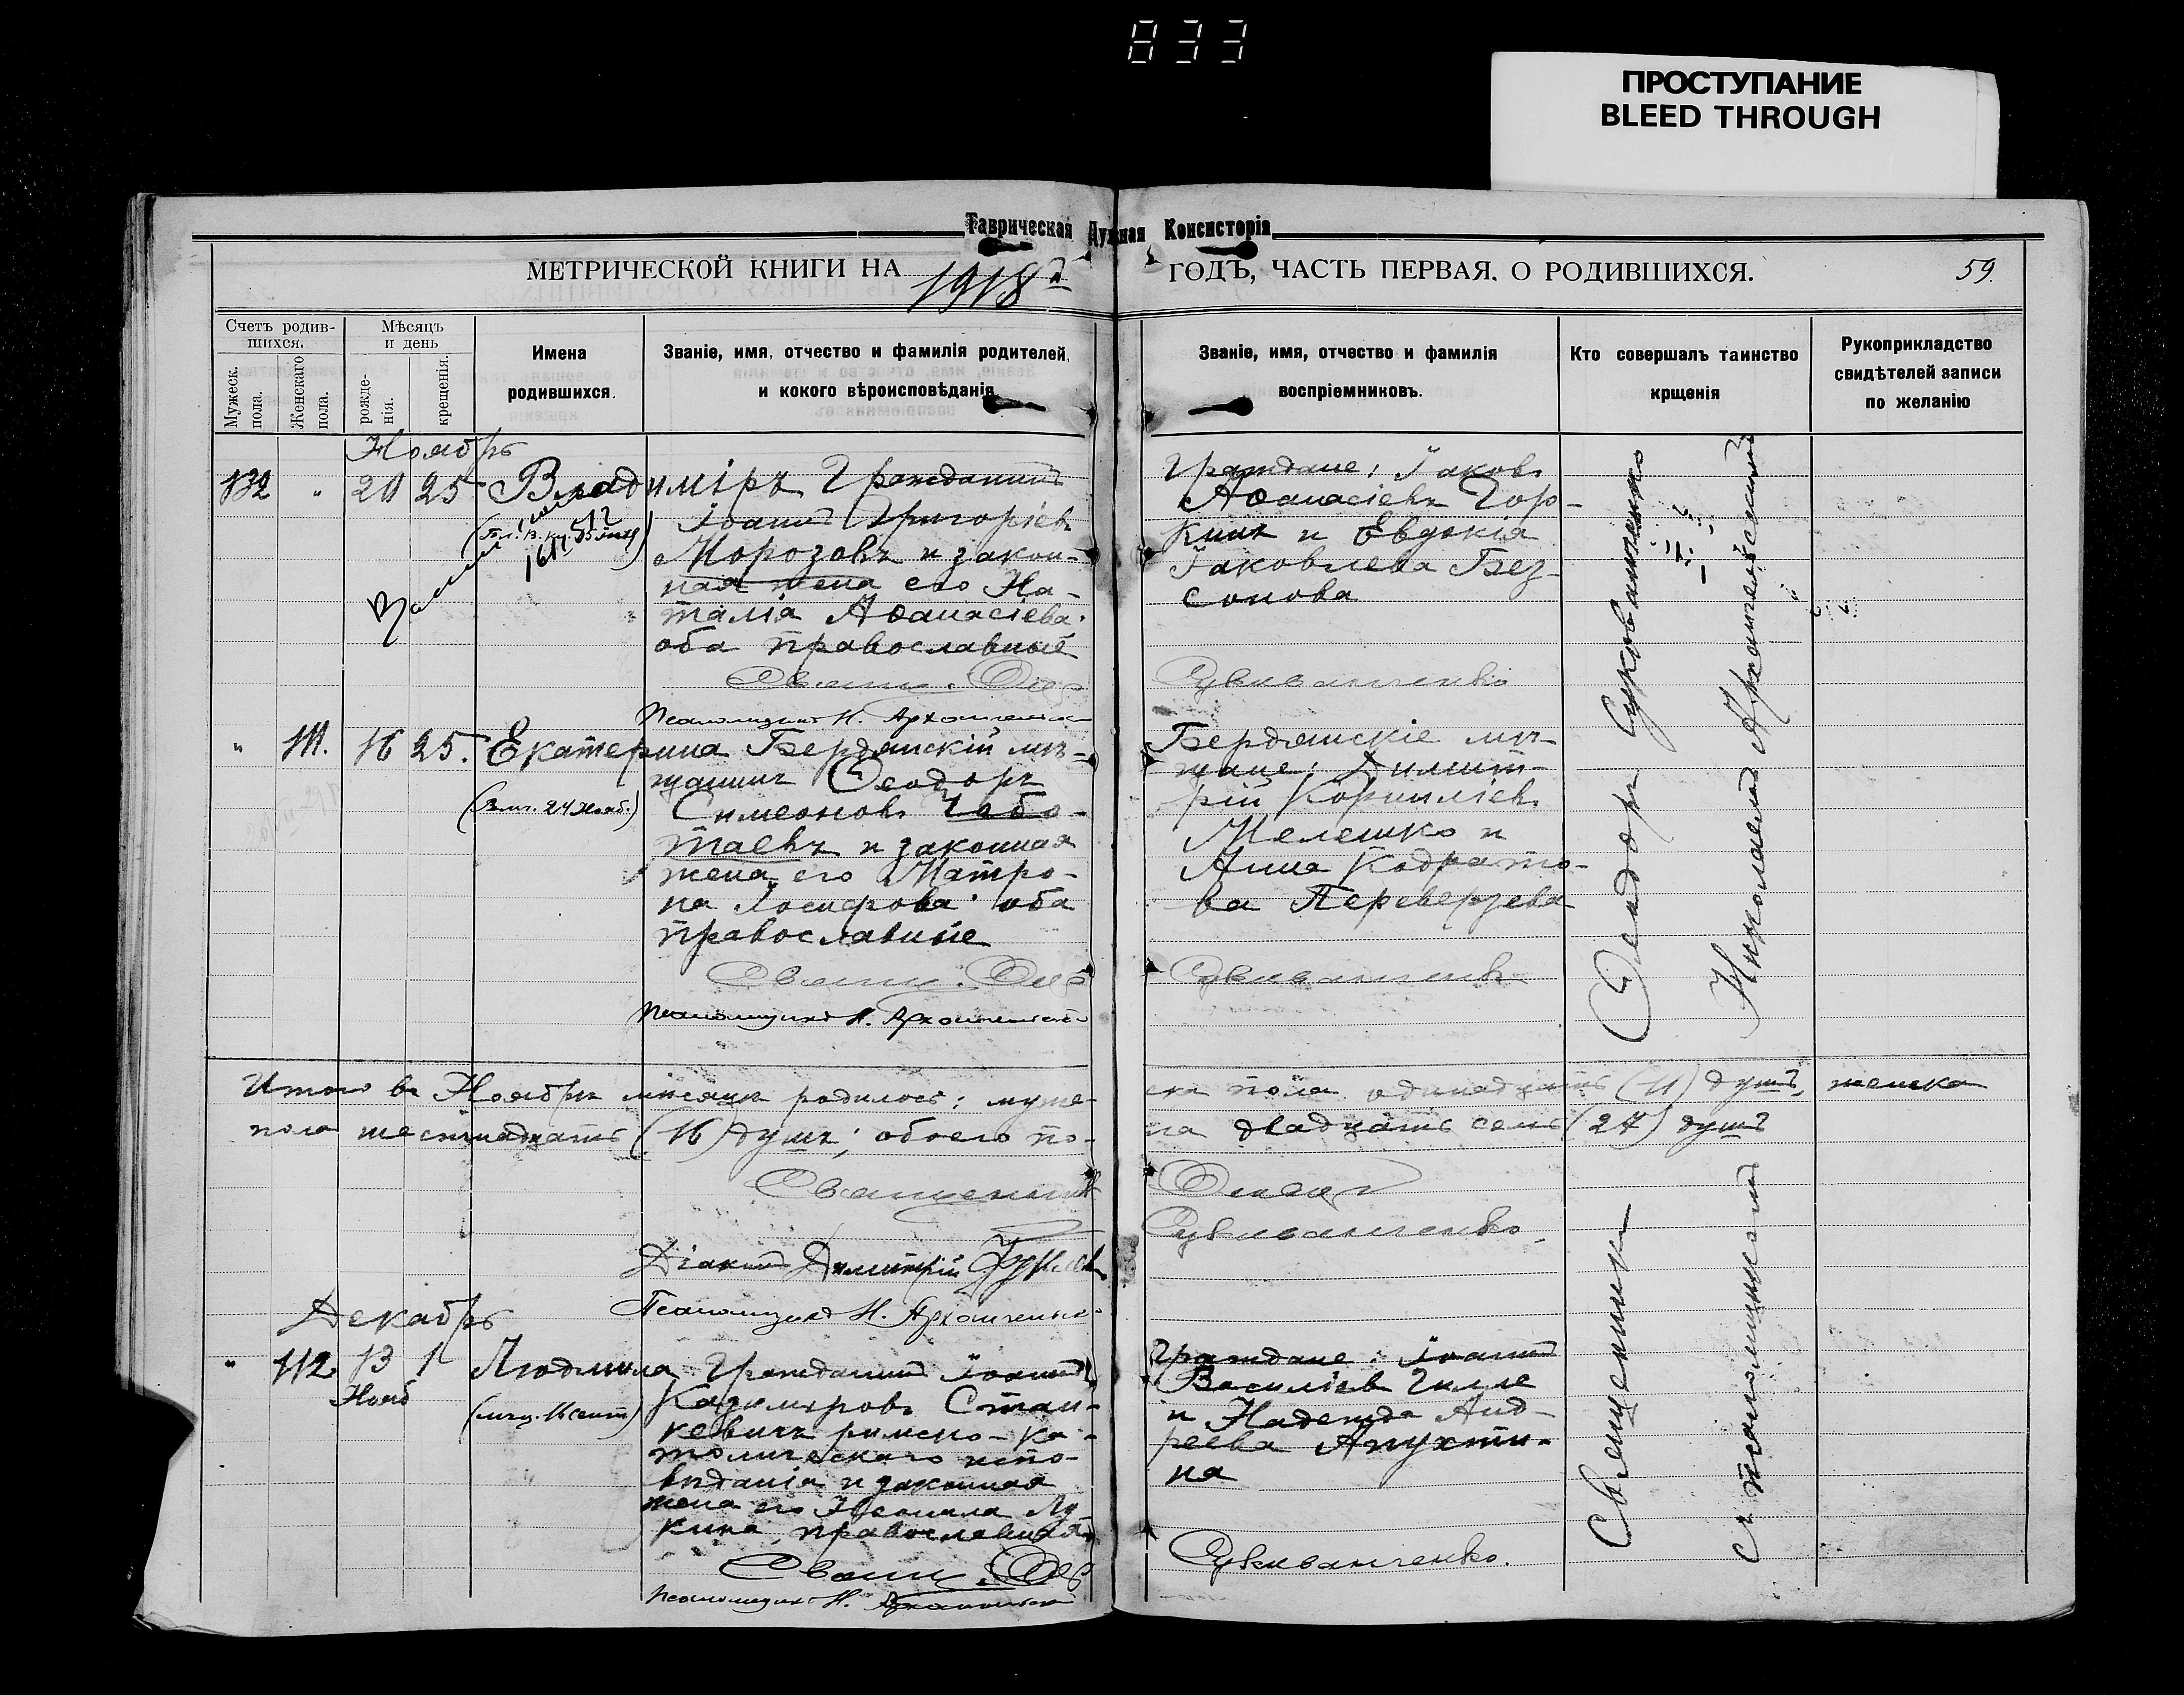 833
ПРОСТУПАНИЕ
BLEED THROUGH
Таврическая Духная Консисторія
МЕТРИЧЕСКОЙ КНИГИ НА 1918 ГОДЪ, ЧАСТЬ ПЕРВАЯ. О РОДИВШИХСЯ. 59.
Счетъ родив-
шихся.
Мужеск. пола.
Женскаго пола.
Мѣсяцъ
и день
рожде-
нія.
крещенія.
Имена
родившихся.
Званіе, имя, отчество и фамилія родителей,
и кокого вѣроисповѣданія
Званіе, имя, отчество и фамилія
воспріемниковъ.
Кто совершалъ таинство
крщенія
Рукоприкладство
свидѣтелей записи
по желанію
Ноябрь
132 " 20 25 Владиміръ Гражданинъ
Іоаннъ Григоріев
Морозовъ и закон-
ная жена его На-
талія Аѳанасіева.
оба православные
Свящ. Ѳеод
Псаломщикъ Н. Архангельскій
Граждане: Іаковъ
Аѳанасіевъ Гор-
кинъ и Евдокія
Іаковлева Без-
сонова
Сукованченко
" 111. 16 25. Екатерина Бердянскій мѣ-
щанинъ Ѳеодоръ
Симеоновъ Чебо-
таевъ и законная
жена его Матро-
на Іосифова оба
православные
Свящ. Ѳеод
Псаломщикъ Н. Архангельскій
Бердянскіе мѣ-
щане: Димит-
рій Корниліев
Мелешко и
Анна Кодрато-
ва Переверзева
Сукованченко
Ѳеодоръ Сукованченко
Николаемъ Архангельскимъ
Итого въ Ноябрѣ мѣсяцѣ родилось: мужеска пола одинадцать (11) душъ, женска
пола шестнадцать (16) душъ; обоего пола двадцать семь (27) душъ
Священникъ Ѳеодоръ
Сукованченко.
Діаконъ Димитрій
Псаломщикъ Н. Архангельскій
Декабрь
" 112. 13 1 Людмила Гражданинъ Іоаннъ
Нояб
Казимировъ Стан-
кевичъ римско-ка-
толическаго испо-
вѣданія и законная
жена его Неонила Лу-
кина, православная
Свящ. Ѳеод
Псаломщикъ Н. Архангельскій
Граждане: Іоаннъ
Василіевъ Гилле
и Надежда Анд-
реева Апухти-
на
Сукованченко.
Священникъ
съ псаломщикомъ